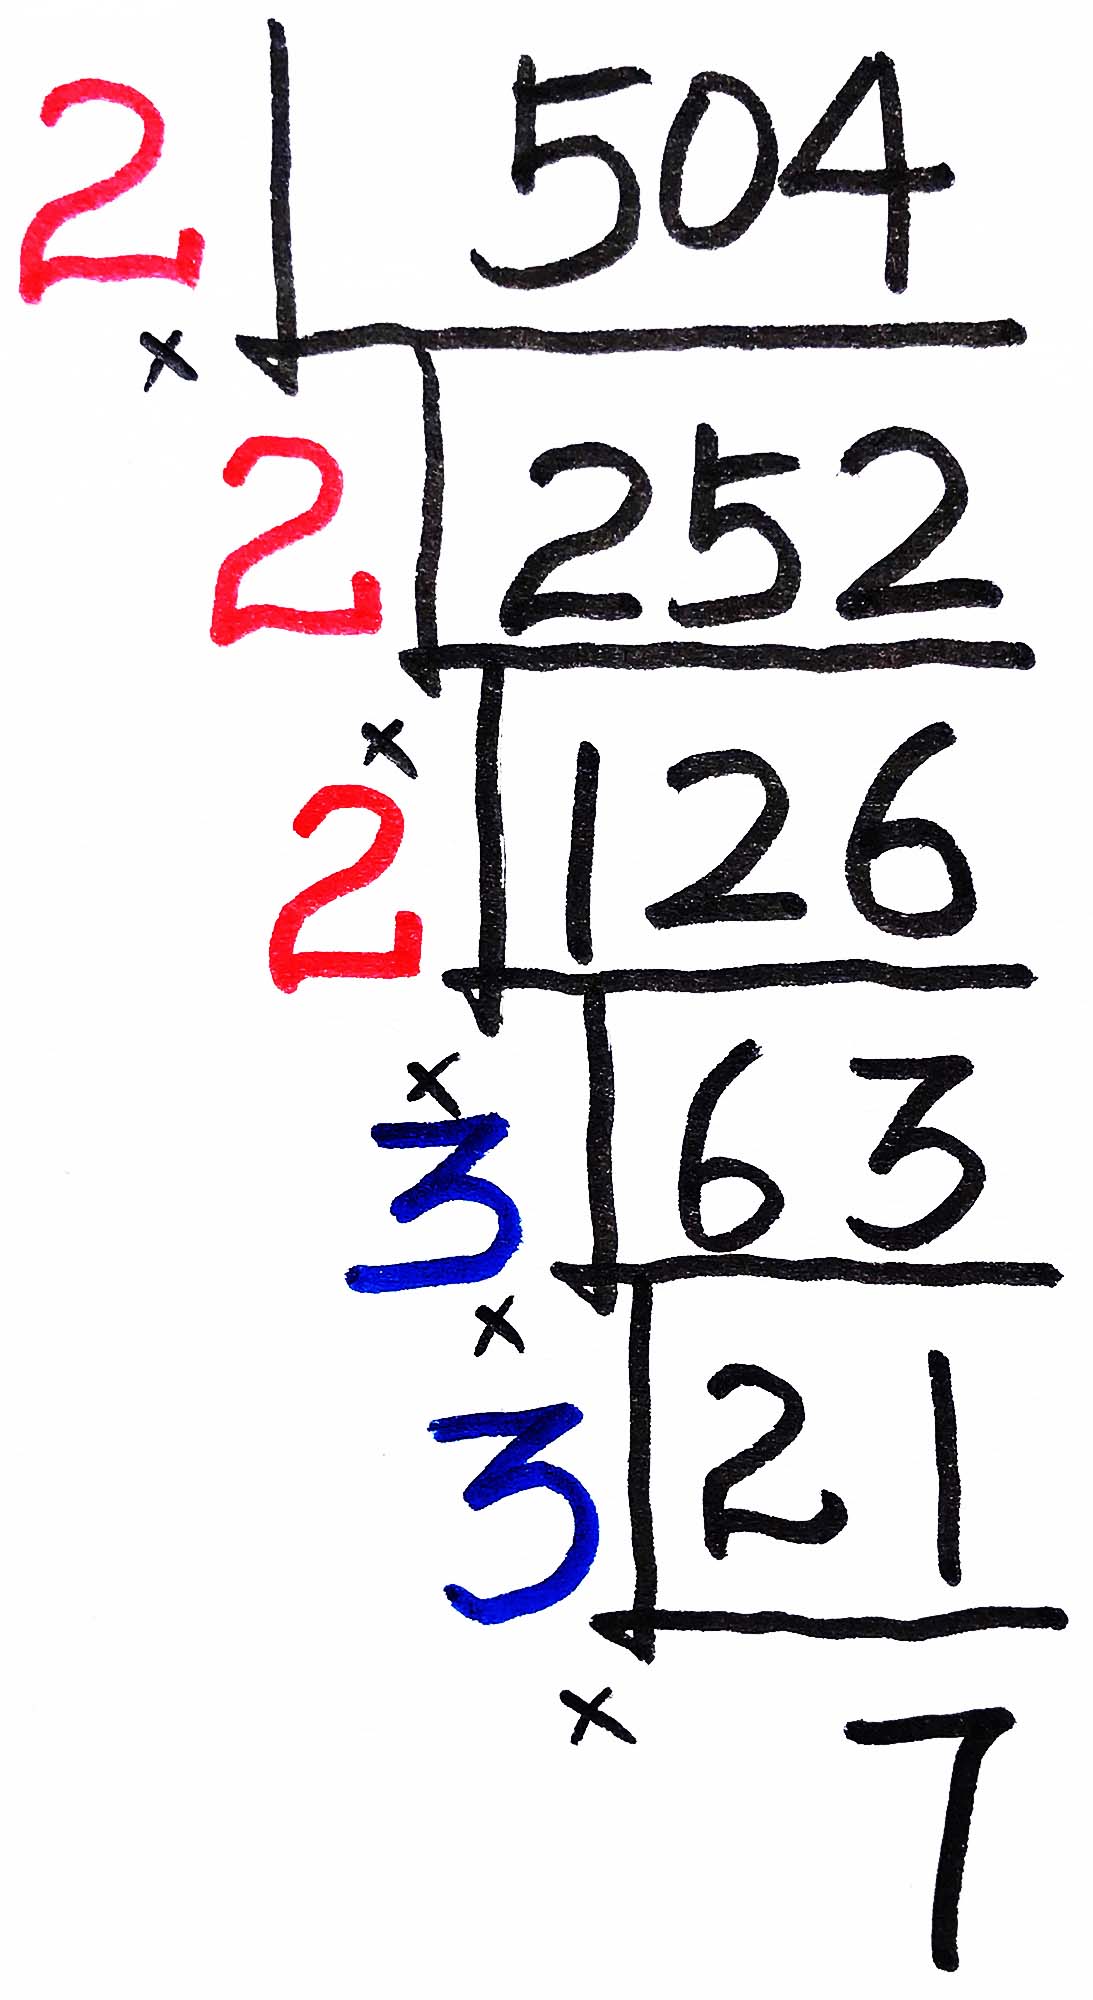 2 504
×
2 252
×
2 126
×
3 63
×
3 21
×
7